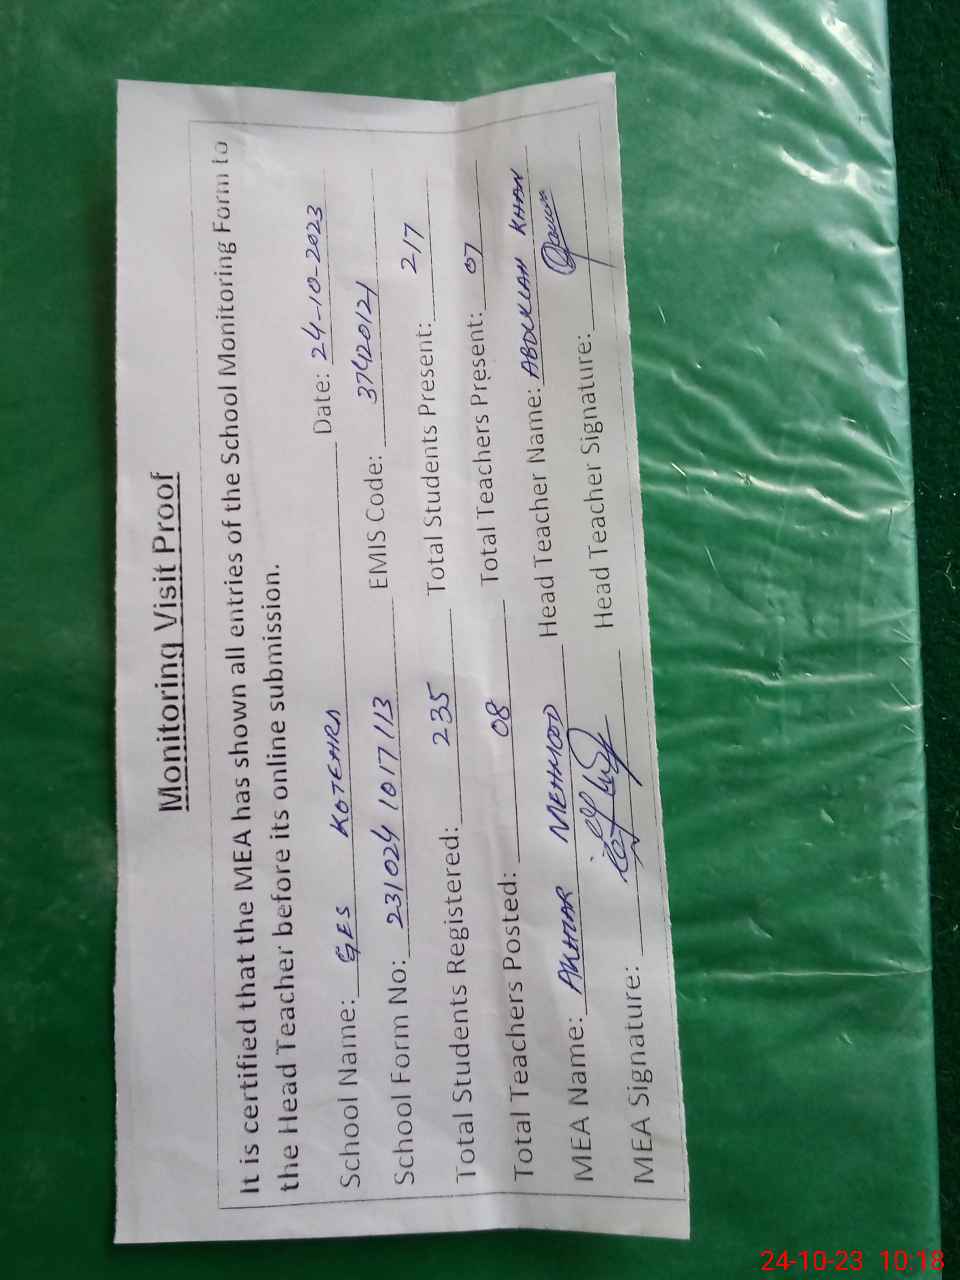 Monitoring Visit Proof
It is certified that the MEA has shown all entries of the School Monitoring Form to
the Head Teacher before its online submission.
School Name: GES KOTEHRA Date: 24-10-2023
School Form No: 231024 1017113 EMIS Code: 37420121
Total Students Registered: 235 Total Students Present: 217
Total Teachers Posted: 08 Total Teachers Present: 07
MEA Name: AKHTAR MEHMOOD Head Teacher Name: ABDULLAH KHAN
MEA Signature: Head Teacher Signature:
24-10-23 10:18